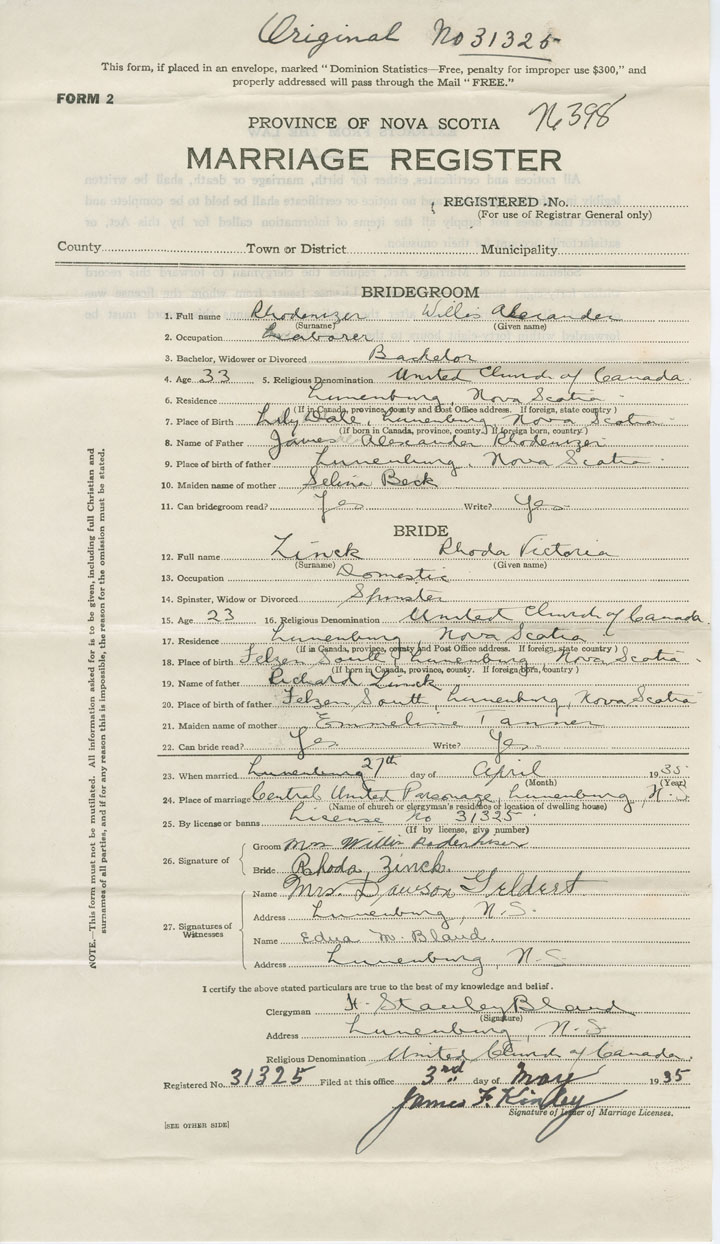 Original No 31325
This form, if placed in an envelope, marked "Dominion Statistics—Free, penalty for improper use $300," and
properly addressed will pass through the Mail "FREE."
FORM 2
PROVINCE OF NOVA SCOTIA
398
MARRIAGE REGISTER
REGISTERED No.
(For use of Registrar General only)
County Town or District Municipality
BRIDEGROOM
1. Full name Rhodenizer Willis Alexander
(Surname) (Given name)
2. Occupation Laborer
3. Bachelor, Widower or Divorced Bachelor
4. Age 33 5. Religious Denomination United Church of Canada
6. Residence Lunenburg, Nova Scotia
(If in Canada, province, county and Post Office address. If foreign, state country)
7. Place of Birth Lily Dale, Lunenburg, Nova Scotia
(If born in Canada, province, county. If foreign born, country)
8. Name of Father James Alexander Rhodenizer
9. Place of birth of father Lunenburg, Nova Scotia
10. Maiden name of mother Selina Beck
11. Can bridegroom read? Yes Write? Yes
BRIDE
12. Full name Zinck Rhoda Victoria
(Surname) (Given name)
13. Occupation Domestic
14. Spinster, Widow or Divorced Spinster
15. Age 23 16. Religious Denomination United Church of Canada
17. Residence Lunenburg Nova Scotia
(If in Canada, province, county and Post Office address. If foreign, state country)
18. Place of birth Felzen South, Lunenburg, Nova Scotia
(If born in Canada, province, county. If foreign born, country)
19. Name of father Richard Zinck
20. Place of birth of father Felzen South, Lunenburg, Nova Scotia
21. Maiden name of mother Emmeline Tanner
22. Can bride read? Yes Write? Yes
23. When married Lunenburg 27th day of April 1935
(Month) (Year)
24. Place of marriage Central United Parsonage, Lunenburg N.S.
(Name of church or clergyman's residence or location of dwelling house)
25. By license or banns License No 31325
(If by license, give number)
26. Signature of
Groom Mrs Willis Rodenhiser
Bride Rhoda Zinck.
27. Signatures of Witnesses
Name Mrs. Dawson Geldert
Address Lunenburg, N.S.
Name Edna M. Bland.
Address Lunenburg, N.S.
I certify the above stated particulars are true to the best of my knowledge and belief.
Clergyman H. Stanley Bland
(Signature)
Address Lunenburg, N.S.
Religious Denomination United Church of Canada.
Registered No. 31325 Filed at this office 3rd day of May 1935
James F. Kinley
Signature of Issuer of Marriage Licenses.
[SEE OTHER SIDE]
NOTE.—This form must not be mutilated. All information asked for is to be given, including full Christian and
surnames of all parties, and if for any reason this is impossible, the reason for the omission must be stated.